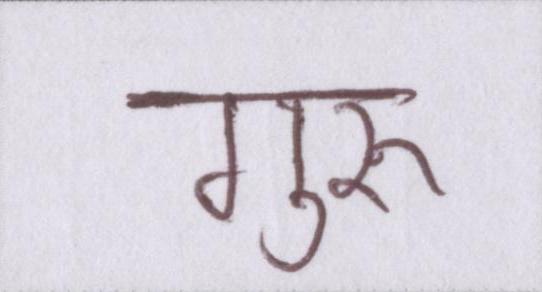 गुरू